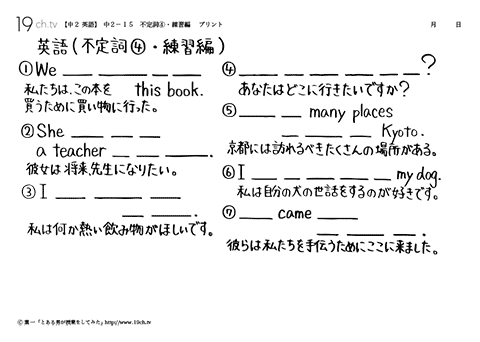 19ch.tv 【中2 英語】 中2-15 不定詞④・練習編 プリント 月 日
英語(不定詞④・練習編)
①We ___ ___ ___ ___
私たちは、この本を this book.
買うために買い物に行った。
②She ___ ___ ___
a teacher ___ ___ ___.
彼女は将来先生になりたい。
③I ___ ___ ___
___ ___.
私は何か熱い飲み物がほしいです。
④___ ___ ___ ___ ___ ___?
あなたはどこに行きたいですか?
⑤___ ___ many places
___ ___ ___ Kyoto.
京都には訪れるべきたくさんの場所がある。
⑥I ___ ___ ___ ___ ___ my dog.
私は自分の犬の世話をするのが好きです。
⑦___ came ___
___ ___ ___.
彼らは私たちを手伝うためにここに来ました。
Ⓒ 葉一「とある男が授業をしてみた」http://www.19ch.tv